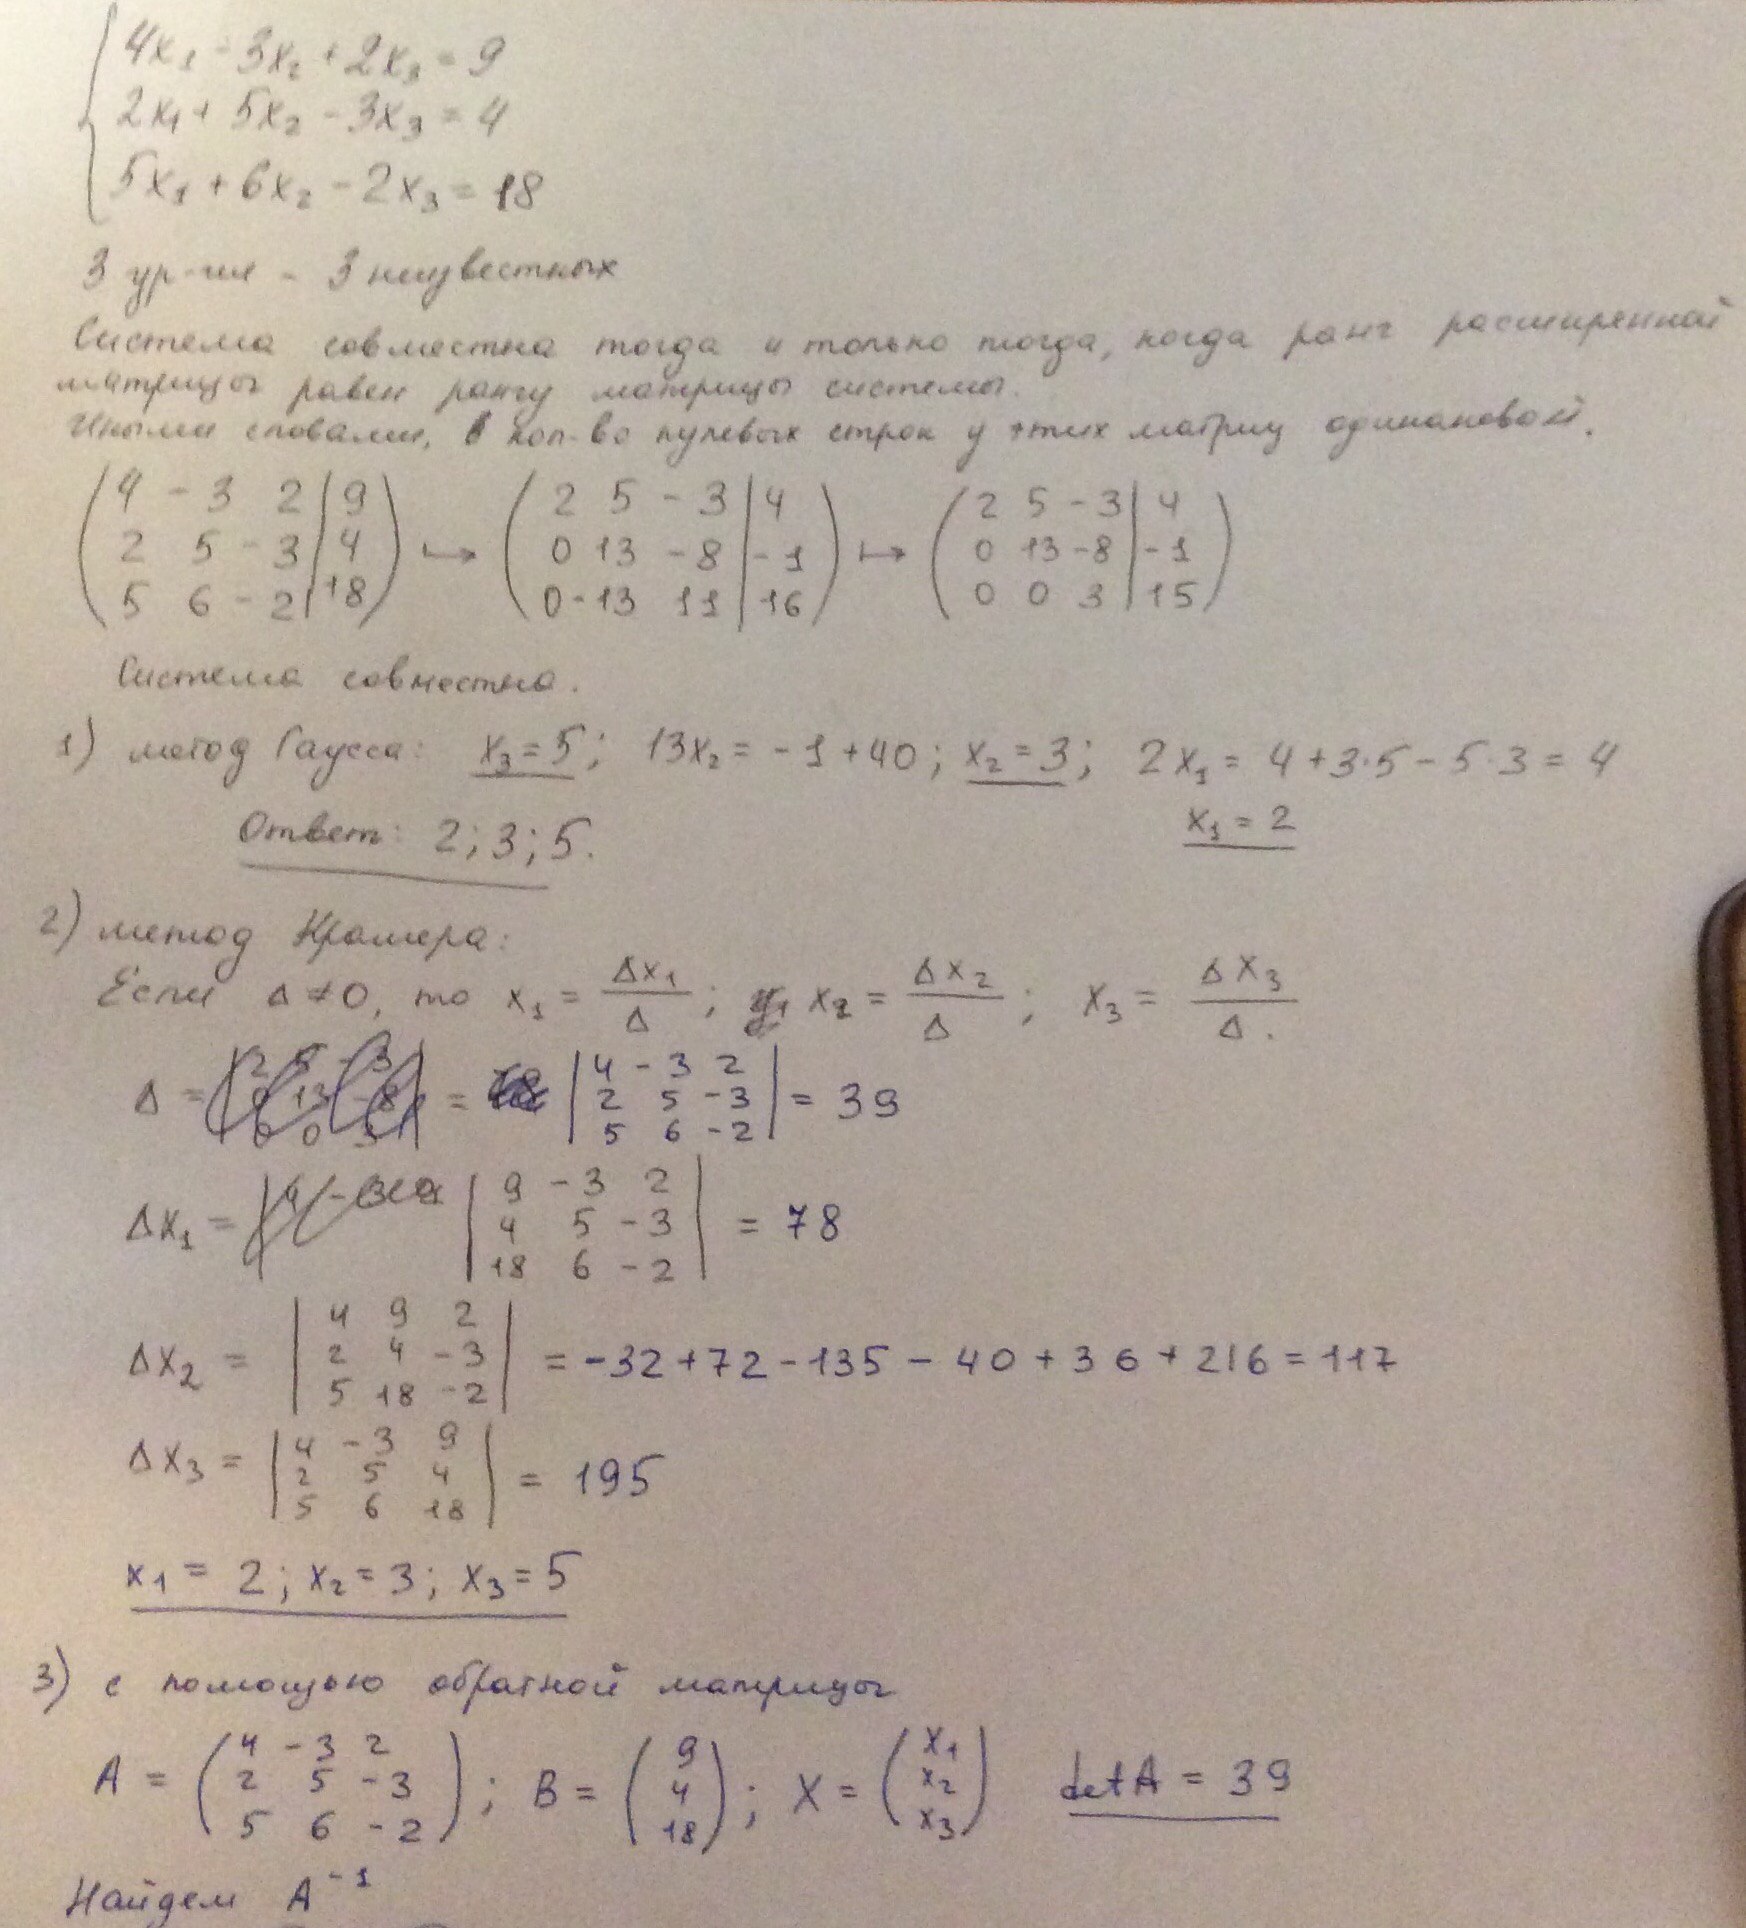 4x₁ - 3x₂ + 2x₃ = 9
2x₁ + 5x₂ - 3x₃ = 4
5x₁ + 6x₂ - 2x₃ = 18
3 ур-ия - 3 неизвестных
Система совместна тогда и только тогда, когда ранг расширенной
матрицы равен рангу матрицы системы.
Иными словами, кол-во нулевых строк у этих матриц одинаковой.
( 4 -3 2 | 9 ) ↦ ( 2 5 -3 | 4 ) ↦ ( 2 5 -3 | 4 )
( 2 5 -3 | 4 ) ( 0 13 -8 | -1 ) ( 0 13 -8 | -1 )
( 5 6 -2 | 18 ) ( 0 -13 11 | 16 ) ( 0 0 3 | 15 )
Система совместна.
1) метод Гаусса: x₃ = 5; 13x₂ = -1 + 40; x₂ = 3; 2x₁ = 4 + 3·5 - 5·3 = 4
x₁ = 2
Ответ: 2; 3; 5.
2) метод Крамера:
Если Δ ≠ 0, то x₁ = Δx₁/Δ; x₂ = Δx₂/Δ; x₃ = Δx₃/Δ.
Δ = = | 4 -3 2 |
| 2 5 -3 | = 39
| 5 6 -2 |
Δx₁ = | 9 -3 2 |
| 4 5 -3 | = 78
| 18 6 -2 |
Δx₂ = | 4 9 2 |
| 2 4 -3 | = -32 + 72 - 135 - 40 + 36 + 216 = 117
| 5 18 -2 |
Δx₃ = | 4 -3 9 |
| 2 5 4 | = 195
| 5 6 18 |
x₁ = 2; x₂ = 3; x₃ = 5
3) с помощью обратной матрицы
A = ( 4 -3 2 ) ; B = ( 9 ) ; X = ( x₁ ) detA = 39
( 2 5 -3 ) ( 4 ) ( x₂ )
( 5 6 -2 ) ( 18 ) ( x₃ )
Найдем A⁻¹